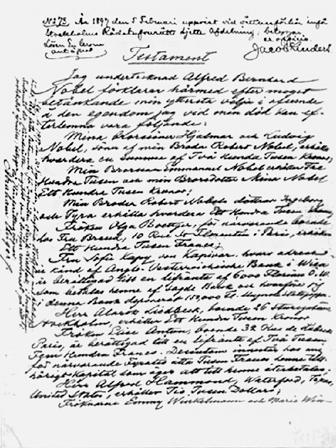 No 73. År 1897 den 5 Februari uppvist vid vittnesförhör inför
Stockholms Rådstufvurätts sjette Afdelning; betygar
Testament
Jag undertecknad Alfred Bernhard
Nobel förklarar härmed efter moget
betänkande min yttersta vilja i afseende
å den egendom jag vid min död kan ef-
terlemna vara följande:
Mina Brorsöner Hjalmar och Ludvig
Nobel, söner af min Broder Robert Nobel, erhålla
hvardera en summa af Två Hundra Tusen Kronor;
Min Brorson Emmanuel Nobel erhåller Tre
Hundra Tusen och min Brorsdotter Mina Nobel
Ett Hundra Tusen Kronor;
Min Broder Robert Nobels döttrar Ingeborg
och Tyra erhålla hvardera Ett Hundra Tusen
Fröken Olga Boettger, för närvarande boende
hos Fru Brand, 10 Rue St Florentin i Paris, erhåller
Ett Hundra Tusen Francs;
Fru Sofie Kapy von Kapivar, hvars adress
är känd af Anglo-Oesterreichische Bank i Wien
är berättigad till en lifränta af 6000 Florins Ö.W.
som betalas henne af sagde Bank och hvarför jag
i denna Bank deponerat 150,000 Fl. i
Herr Alarik Liedbeck, boende 26 Sturegatan,
Stockholm, erhåller Ett Hundra Tusen Kronor
Fröken Elise Antun, boende 32 Rue de Lubeck,
Paris, är berättigad till en lifränta af Två Tusen
Fem Hundra Francs. Dessutom innestår hos mig
för närvarande Fyratio åtta Tusen Francs henne till-
hörigt Kapital som äger att till henne återbetalas;
Herr Alfred Hammond, Waterford, Texas,
United States, erhåller Tio Tusen Dollars;
Fröknarna Emmy Winkelmann och Marie Win-